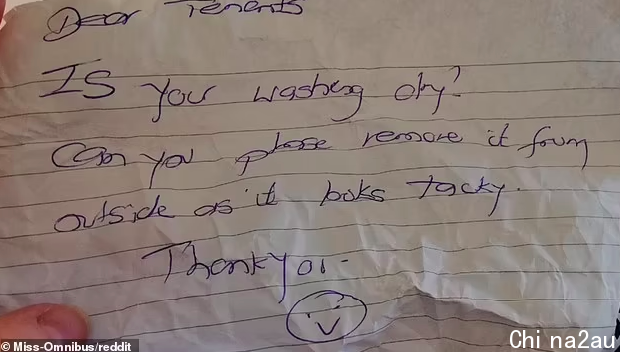 Dear Tenants
Is your washing dry?
Can you please remove it from
outside as it looks tacky.
Thankyou-
© Miss-Omnibus/reddit
Chi na2au